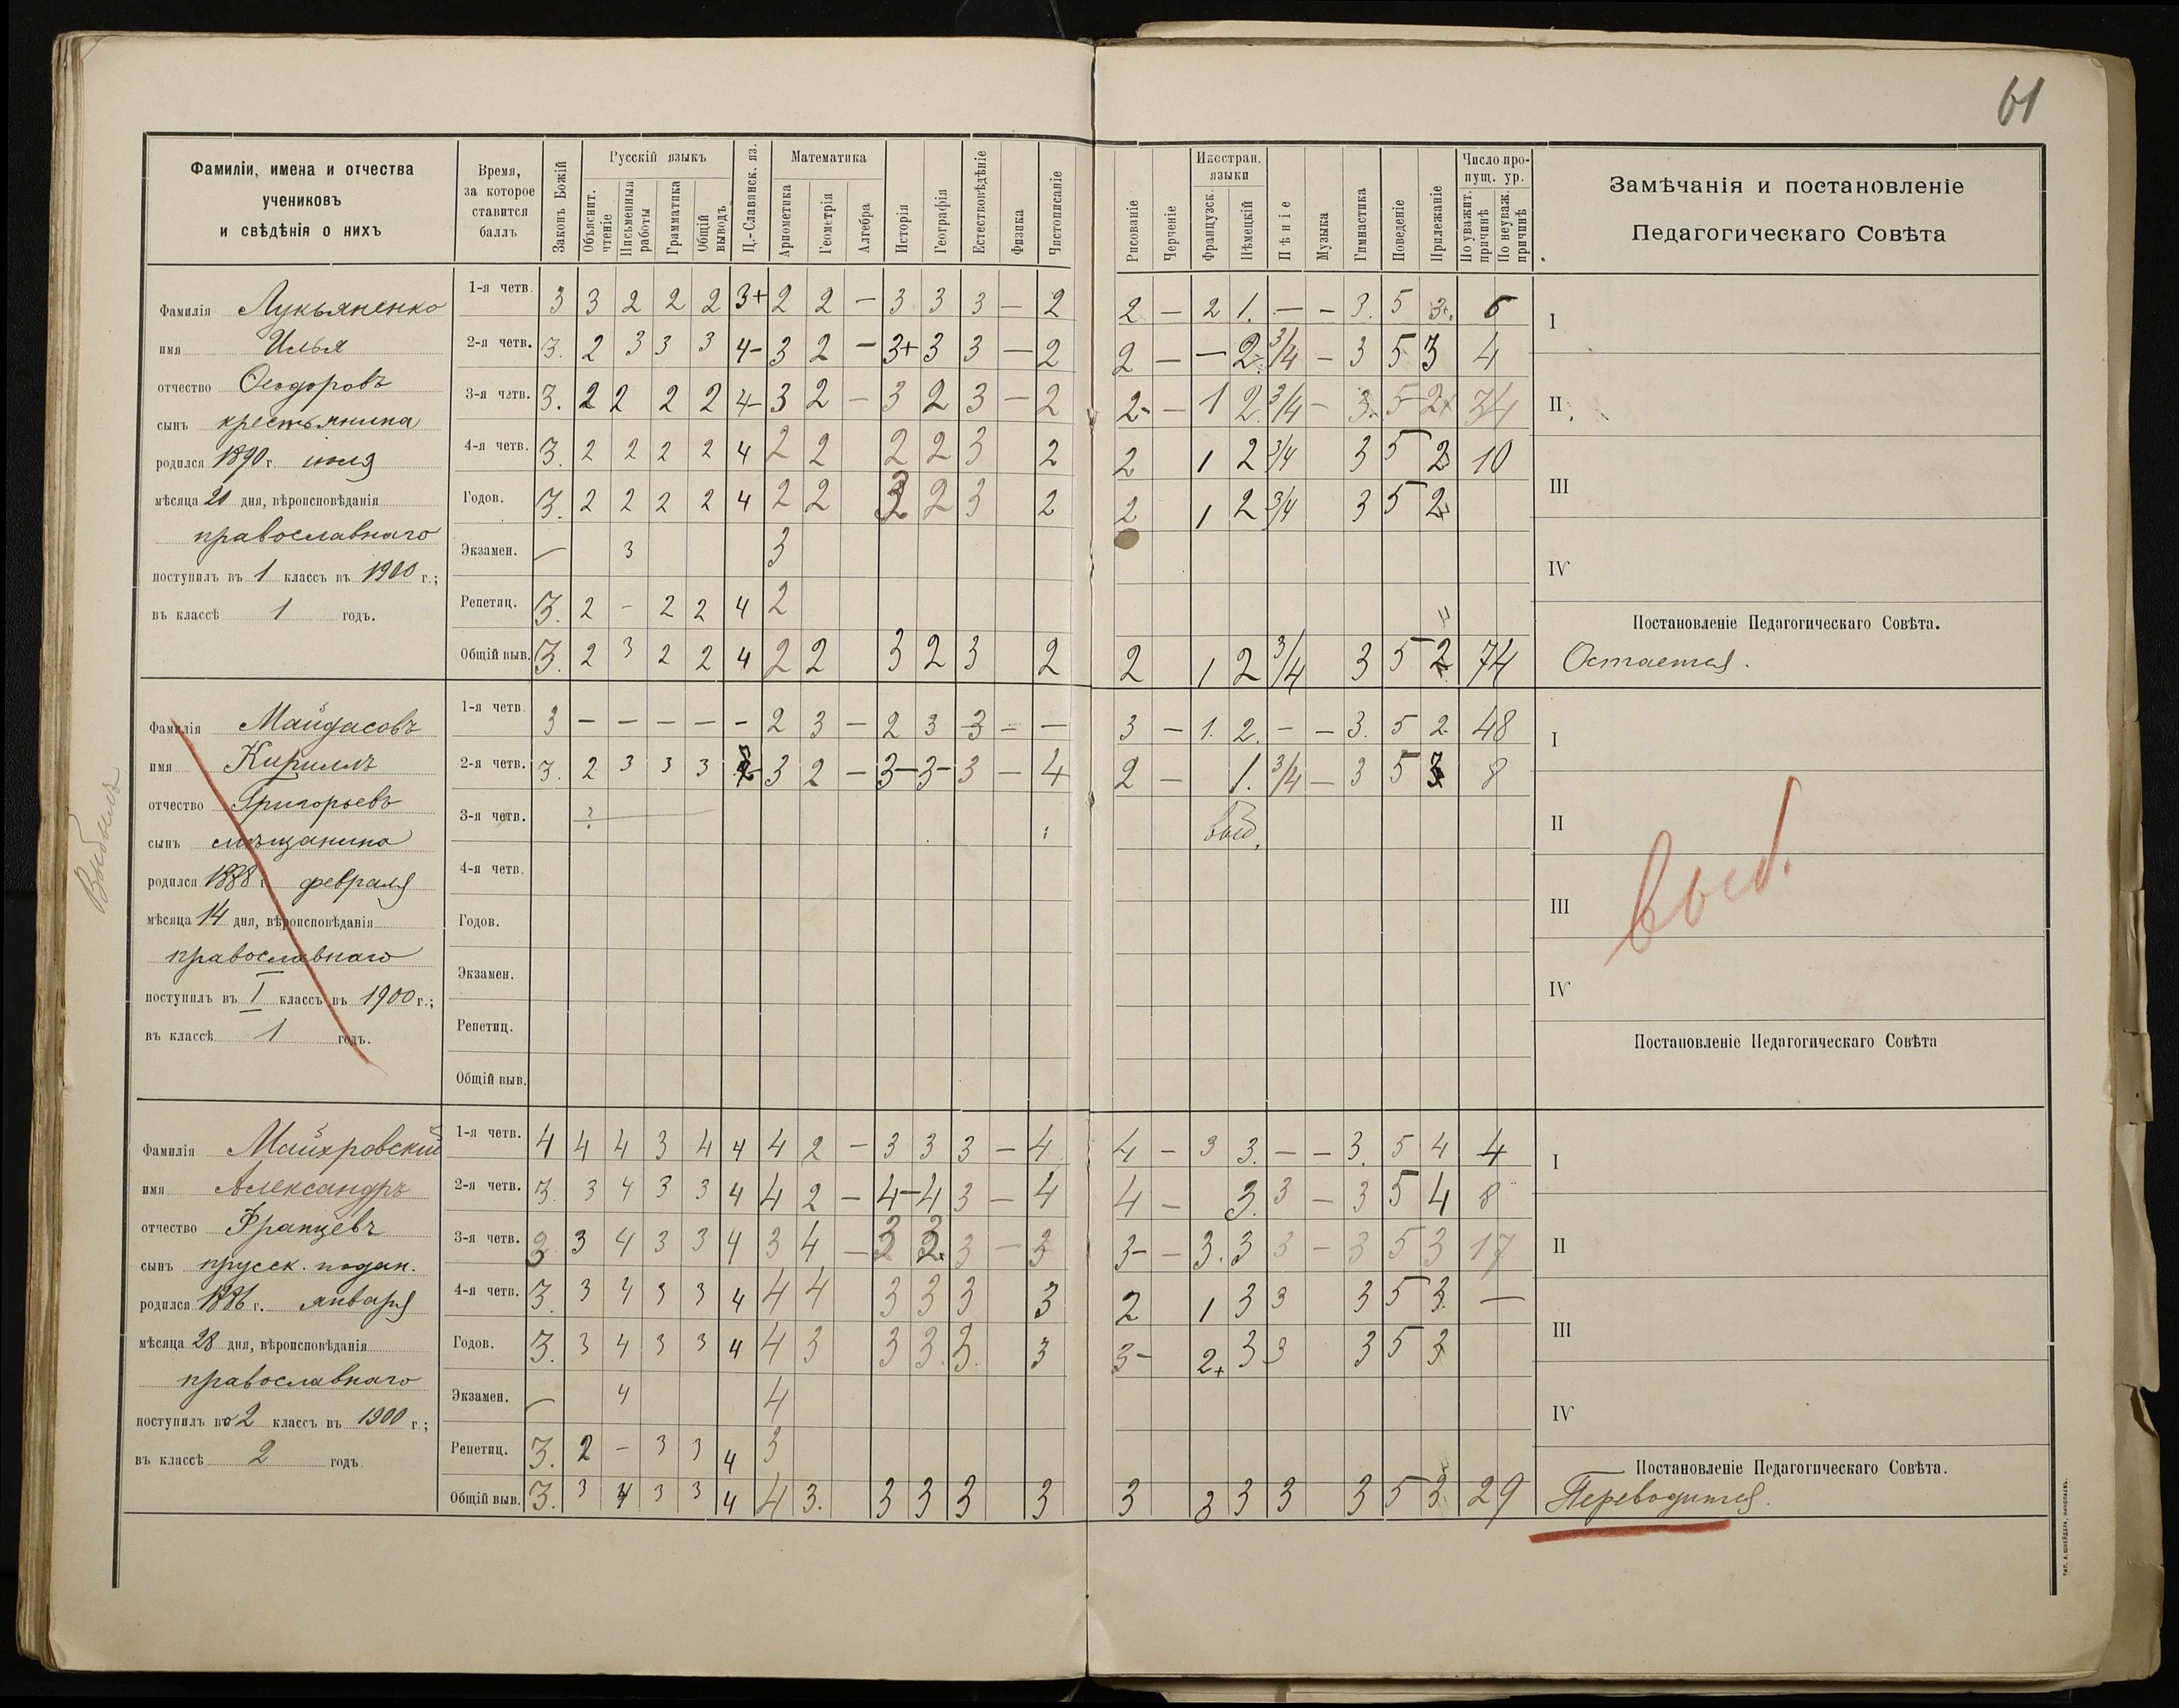 61
Фамиліи, имена и отчества
учениковъ
и свѣдѣнія о нихъ
Время,
за которое
ставится
баллъ
Законъ Божій
Русскій языкъ
Объяснит. чтеніе
Письменныя работы
Грамматика
Общій выводъ
Ц.-Славянск. яз.
Математика
Ариѳметика
Геометрія
Алгебра
Исторія
Географія
Естествовѣдѣніе
Физика
Чистописаніе
Рисованіе
Черченіе
Иностран. языки
Французск.
Нѣмецкій
Пѣніе
Музыка
Гимнастика
Поведеніе
Прилежаніе
Число пропущ. ур.
По уважит. причинѣ
По неуваж. причинѣ
Замѣчанія и постановленіе
Педагогическаго Совѣта
Фамилія Лукьяненко
имя Илья
отчество Ѳеодоровъ
сынъ крестьянина
родился 1890 г. іюля
мѣсяца 20 дня, вѣроисповѣданія
православнаго
поступилъ въ 1 классъ въ 1900 г.;
въ классѣ 1 годъ.
1-я четв. 3 3 2 2 2 3+ 2 2 — 3 3 3 — 2 2 — 2 1. — — 3. 5 3. 6
2-я четв. 3. 2 3 3 3 4- 3 2 — 3+ 3 3 — 2 2 — — 2. 3/4 — 3 5 3 4
3-я четв. 3. 2 2 2 2 4- 3 2 — 3 2 3 — 2 2- — 1 2 3/4 — 3. 5 2+ 34
4-я четв. 3. 2 2 2 2 4 2 2 2 2 3 2 2 1 2 3/4 3 5 2 10
Годов. 3. 2 2 2 2 4 2 2 3 2 3 2 2 1 2 3/4 3 5 2
Экзамен. — 3 3
Репетиц. 3. 2 - 2 2 4 2
Общій выв. 3. 2 3 2 2 4 2 2 3 2 3 2 2 1 2 3/4 3 5 2 74
I
II
III
IV
Постановленіе Педагогическаго Совѣта.
Остается.
Выбылъ
Фамилія Майдасовъ
имя Кириллъ
отчество Григорьевъ
сынъ мѣщанина
родился 1888 г. февраля
мѣсяца 14 дня, вѣроисповѣданія
православнаго
поступилъ въ I классъ въ 1900 г.;
въ классѣ 1 годъ.
1-я четв. 3 — — — — - 2 3 — 2 3 3 — — 3 — 1. 2. - — 3. 5 2. 48
2-я четв. 3. 2 3 3 3 3 2 — 3- 3- 3 — 4 2 — 1. 3/4 — 3 5 3 8
3-я четв. ? выб.
4-я четв.
Годов.
Экзамен.
Репетиц.
Общій выв.
I
II
III
IV
выб.
Постановленіе Педагогическаго Совѣта
Фамилія Майхровскій
имя Александръ
отчество Францевъ
сынъ прусск. подан.
родился 1886 г. января
мѣсяца 28 дня, вѣроисповѣданія
православнаго
поступилъ во 2 классъ въ 1900 г;
въ классѣ 2 годъ
1-я четв. 4 4 4 3 4 4 4 2 — 3 3 3 — 4 4 — 3 3. — — 3. 5 4 4
2-я четв. 3. 3 4 3 3 4 4 2 — 4- 4 3 — 4 4 — 3. 3 — 3 5 4 8
3-я четв. 3 3 4 3 3 4 3 4 — 3 3 — 3 3- — 3. 3 3 — 3 5 3 17
4-я четв. 3. 3 4 3 3 4 4 4 3 3 3 3 2 1 3 3 3 5 3. —
Годов. 3. 3 4 3 3 4 4 3 3 3. 3. 3 3- 2+ 3 3 3 5 3
Экзамен. — 4 4
Репетиц. 3. 2 - 3 3 4 3
Общій выв. 3. 3 4 3 3 4 4 3. 3 3 3 3 3 3 3 3 3 5 3 29
I
II
III
IV
Постановленіе Педагогическаго Совѣта.
Переводится.
ТИП. А. ШНЕЙДЕРА, НИКОЛАЕВЪ.